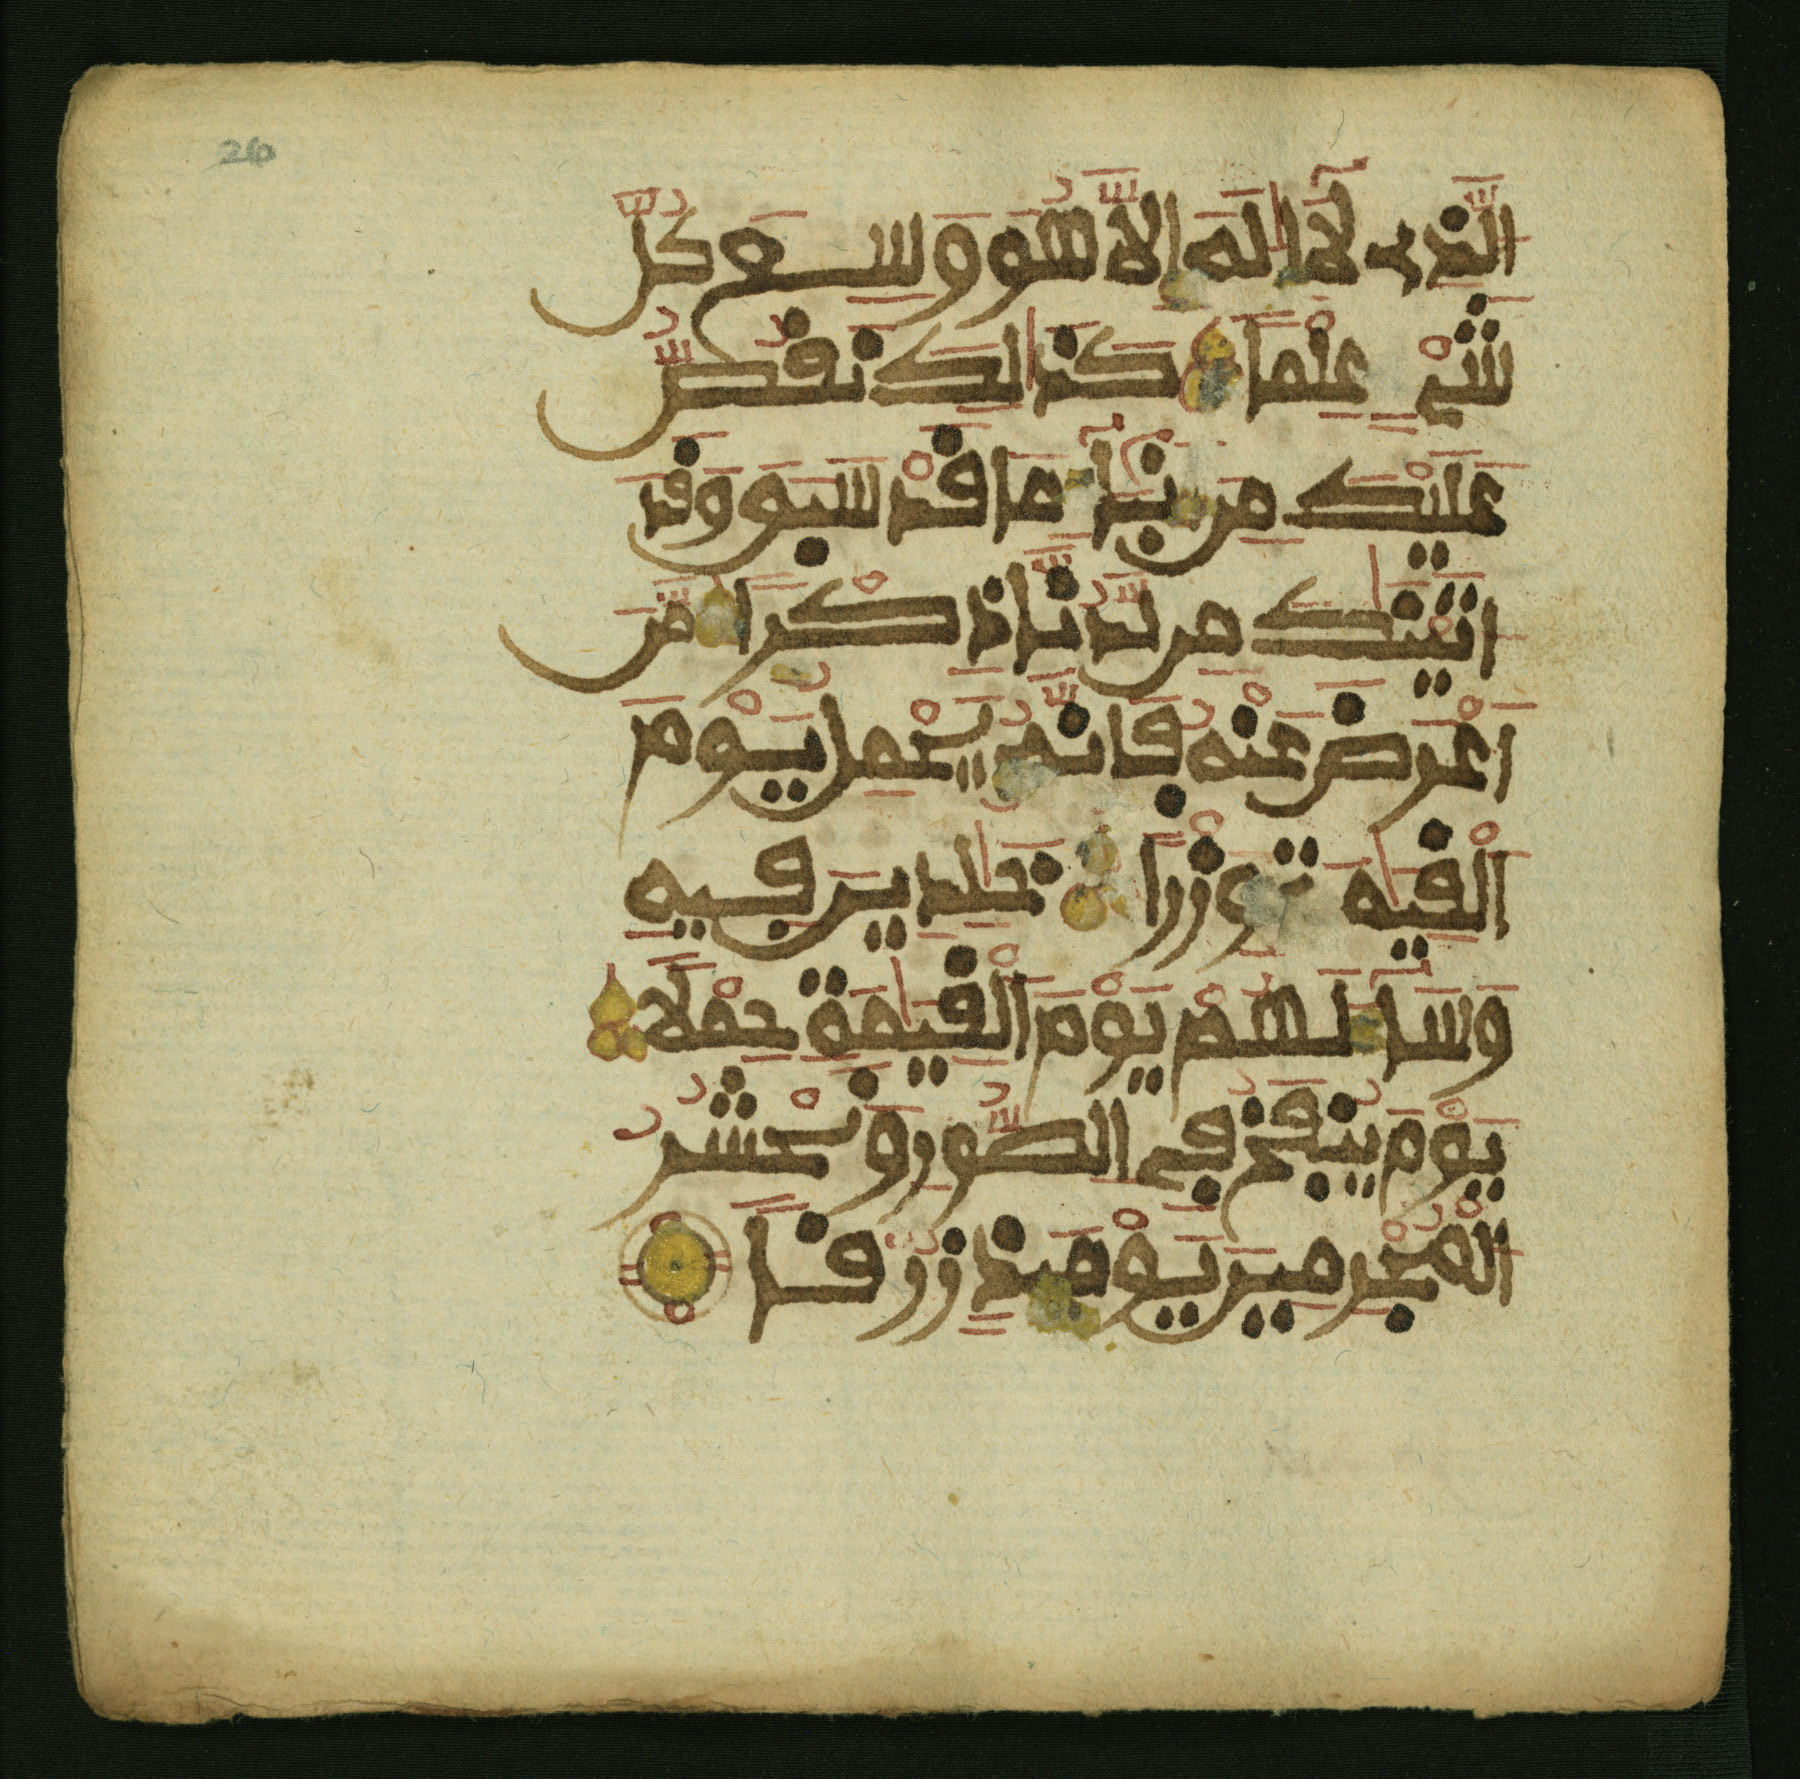 26
الَّذِے لَآ إِلَٰهَ إِلَّا هُوَ وَسِعَ كُلَّ
شَيْءٍ عِلْمًا كَذَٰلِكَ نَقُصُّ
عَلَيْكَ مِنَ اَنۢبَآءِ مَا قَدْ سَبَقَ وَقَدَ
اٰتَيْنَٰكَ مِن لَّدُنَّا ذِكْرًا مَّنَ
اَعْرَضَ عَنْهُ فَإِنَّهُۥ يَحْمِلُ يَوْمَ
اَلْقِيَٰمَةِ وِزْرًا خَٰلِدِينَ فِيهِ
وَسَآءَ لَهُمْ يَوْمَ اَلْقِيَٰمَةِ حِمْلًا
يَوْمَ يُنفَخُ فِے الصُّورِ وَنَحْشُرُ
الْمُجْرِمِينَ يَوْمَئِذٍ زُرْقًا